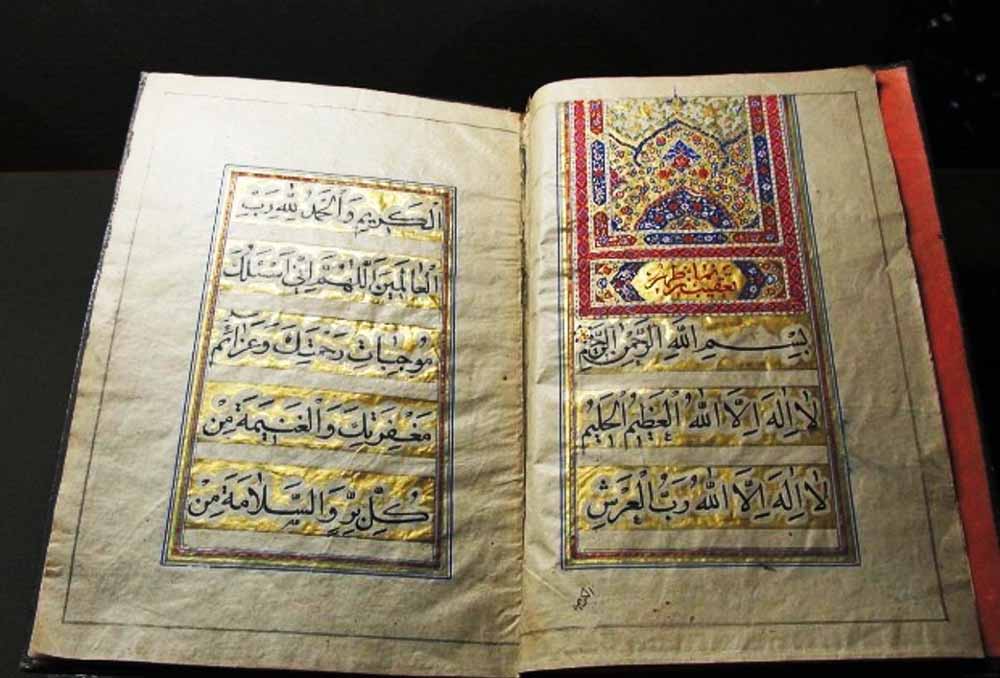 تعقیب نماز ظهر
بِسْمِ اللهِ الرَّحْمٰنِ الرَّحيمِ
لا اِلهَ اِلَّا اللهُ الْعَظيمُ الْحَليمُ
لا اِلهَ اِلَّا اللهُ رَبُّ الْعَرْشِ
الکریم
الْكَريمِ وَالْحَمْدُ لِلّهِ رَبِّ
الْعالَمينَ اَللّهُمَّ اِنّي اَسْئَلُكَ
مُوجِباتِ رَحْمَتِكَ وَعَزائِمَ
مَغْفِرَتِكَ وَالْغَنيمَةَ مِنْ
كُلِّ بِرٍّ وَالسَّلامَةَ مِنْ